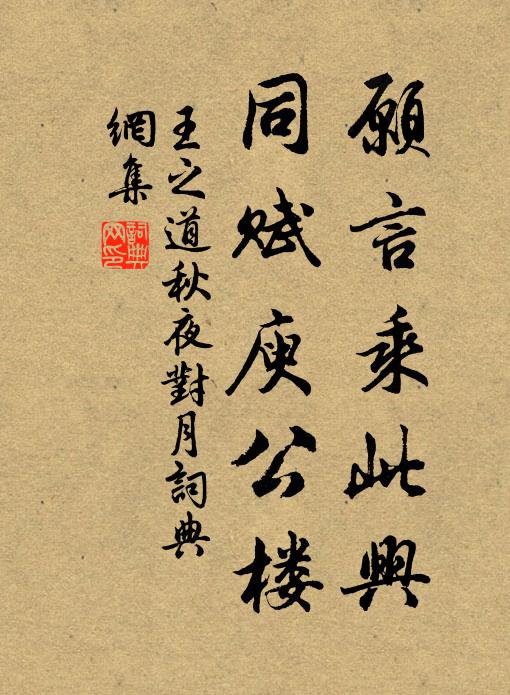 願言乘此興
同赋庾公楼
王之道秋夜對月詞典
網集
詞典
网印